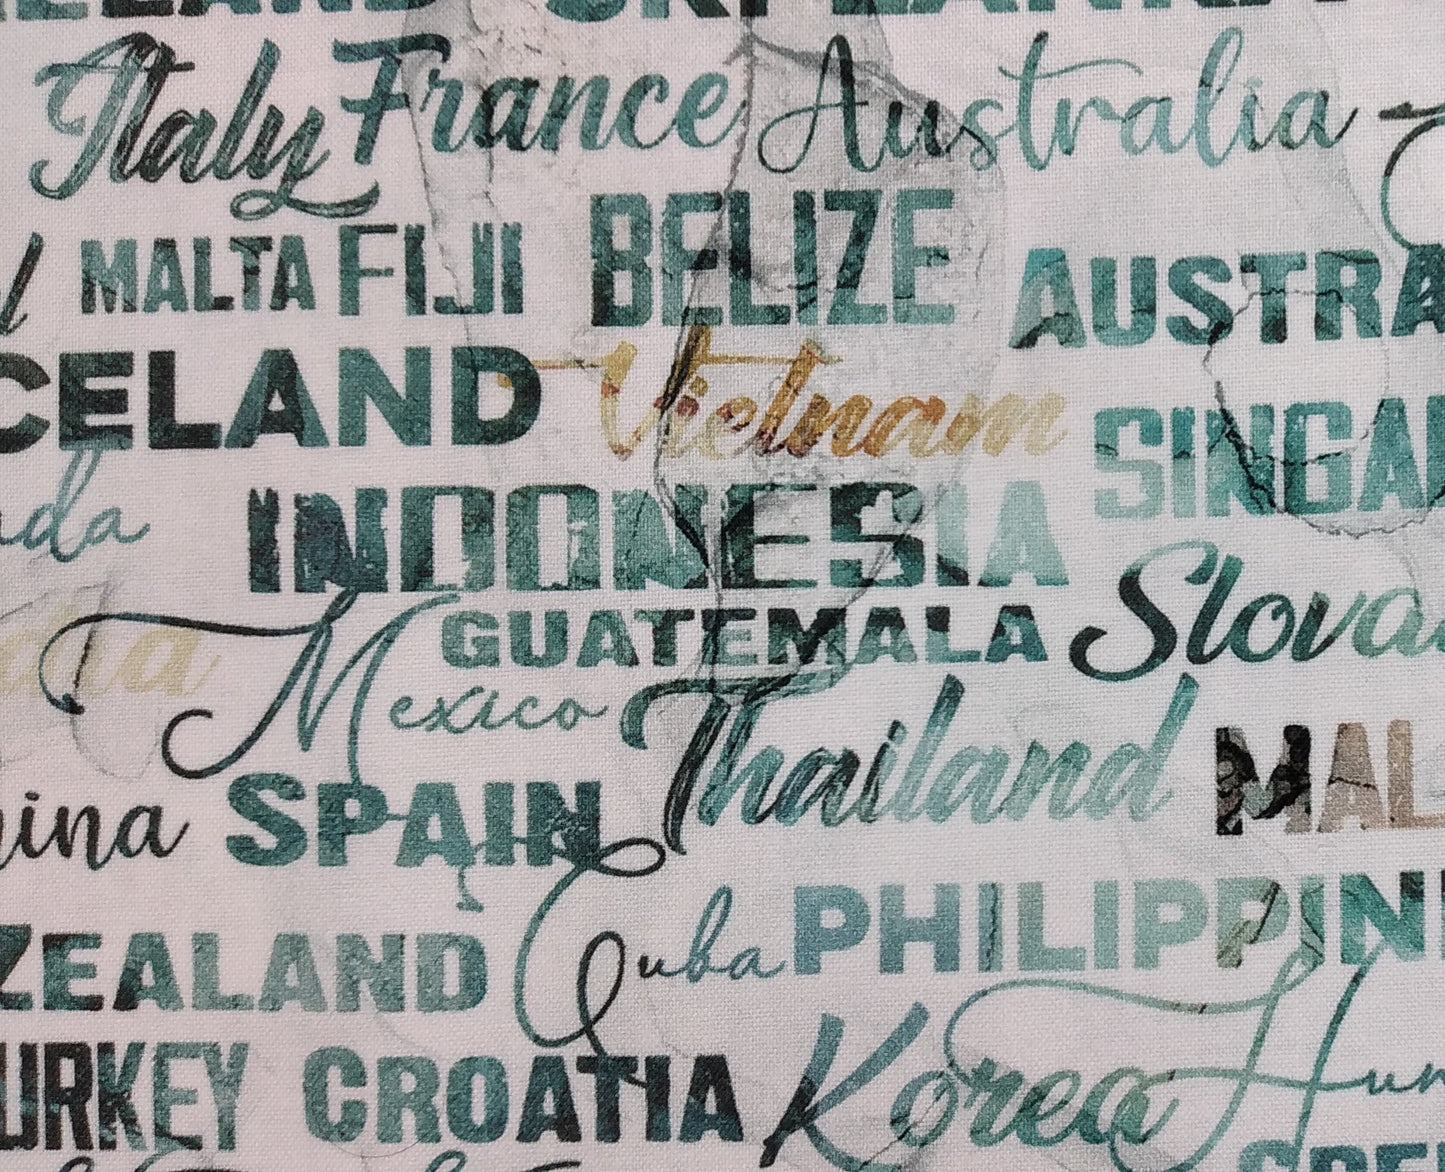 Italy France Australia
MALTA FIJI BELIZE AUSTRA
CELAND Vietnam SINGA
INDONESIA
GUATEMALA Slova
Mexico Thailand MAL
ina SPAIN
ZEALAND Cuba PHILIPPIN
URKEY CROATIA Korea Hun